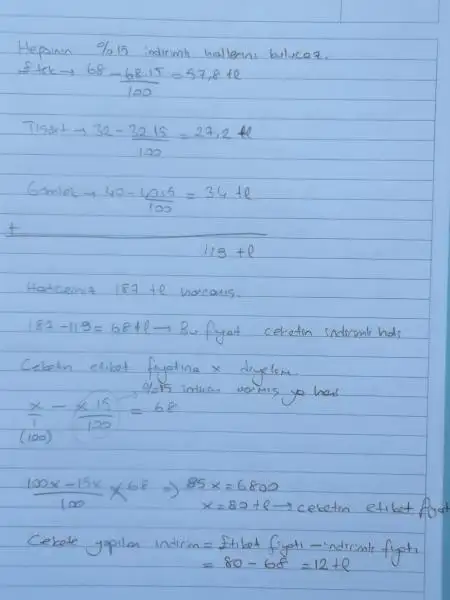 Hepsinin %15 indirimli hallerini bulucaz.
Etek → 68 - 68.15 = 57,8 tl
100
Tişört → 32 - 32.15 = 27,2 tl
100
Gömlek → 40 - 40.15 = 34 tl
100
+
119 tl
187 tl harcamış.
187 - 119 = 68 tl → Bu fiyat ceketin indirimli hali
Ceketin etiket fiyatına x diyelim
%15 indirim varmış ya hani
x - x.15 = 68
1 100
(100)
100x - 15x = 68 ⇒ 85x = 6800
100
x = 80 tl → ceketin etiket fiyatı
Cekete yapılan indirim = Etiket fiyatı - indirimli fiyatı
= 80 - 68 = 12 tl